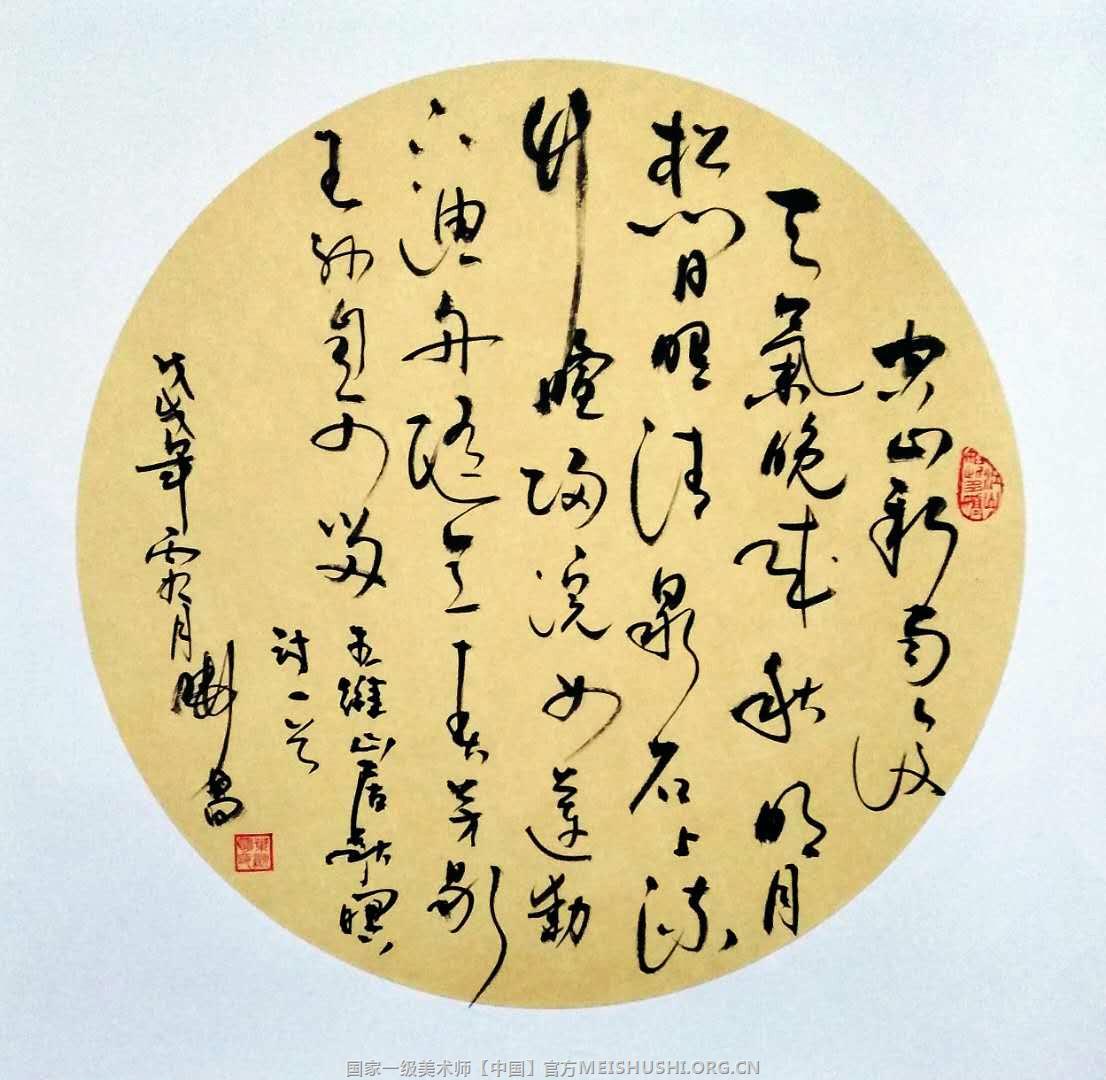 空山新雨後
天氣晚來秋明月
松間照清泉石上流
竹喧歸浣女蓮動
下漁舟隨意春芳歇
王孫自可留
王維山居秋暝
詩一首
戊戌年霜月
書
国家一级美术师【中国】官方MEISHUSHI.ORG.CN